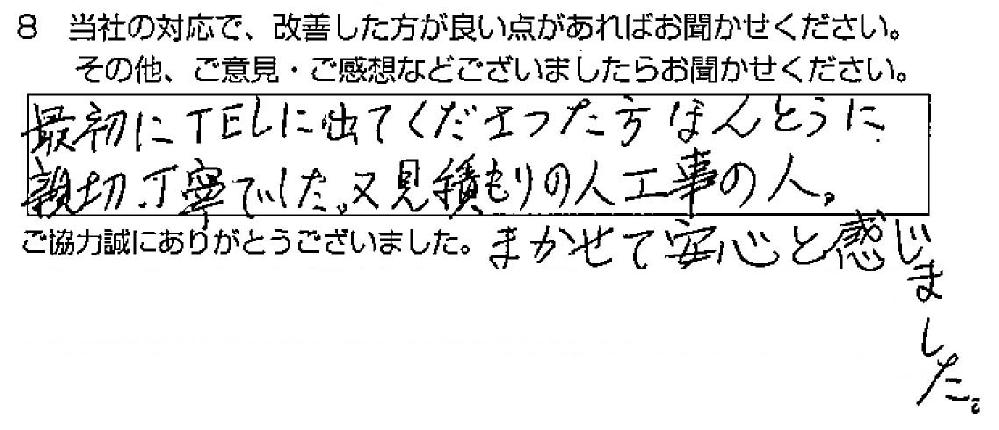 8 当社の対応で、改善した方が良い点があればお聞かせください。
その他、ご意見・ご感想などございましたらお聞かせください。
最初にTELに出てくださった方ほんとうに
親切、丁寧でした。又見積もりの人工事の人。
ご協力誠にありがとうございました。
まかせて安心と感じました。